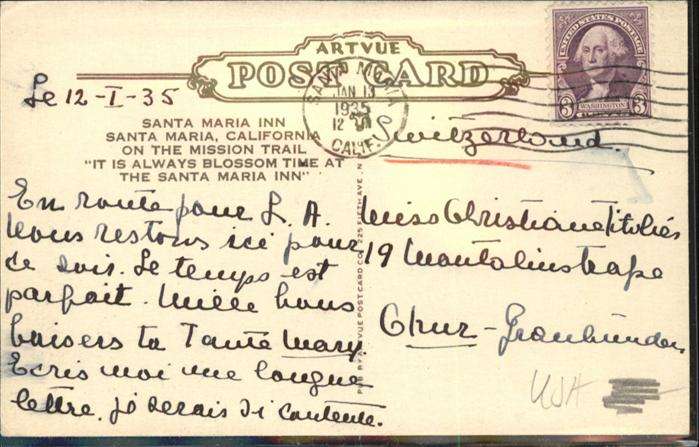 ARTVUE
POST CARD
UNITED STATES POSTAGE
3 WASHINGTON 3
SANTA MARIA
JAN 13
1935
12 M
CALIF.
Le 12-I-35
SANTA MARIA INN
SANTA MARIA, CALIFORNIA
ON THE MISSION TRAIL
"IT IS ALWAYS BLOSSOM TIME AT
THE SANTA MARIA INN"
En route pour L. A.
Nous restons ici pour
ce soir. Le temps est
parfait. Mille bons
baisers ta Tante Mary.
Ecris moi une longue
lettre. je serais si contente.
PUB BY ARTVUE POST CARD CO., 225 FIFTH AVE., N
Switzerland.
Miss Christiane
19 Montalinstrasse
Chur - Graubünden
USA